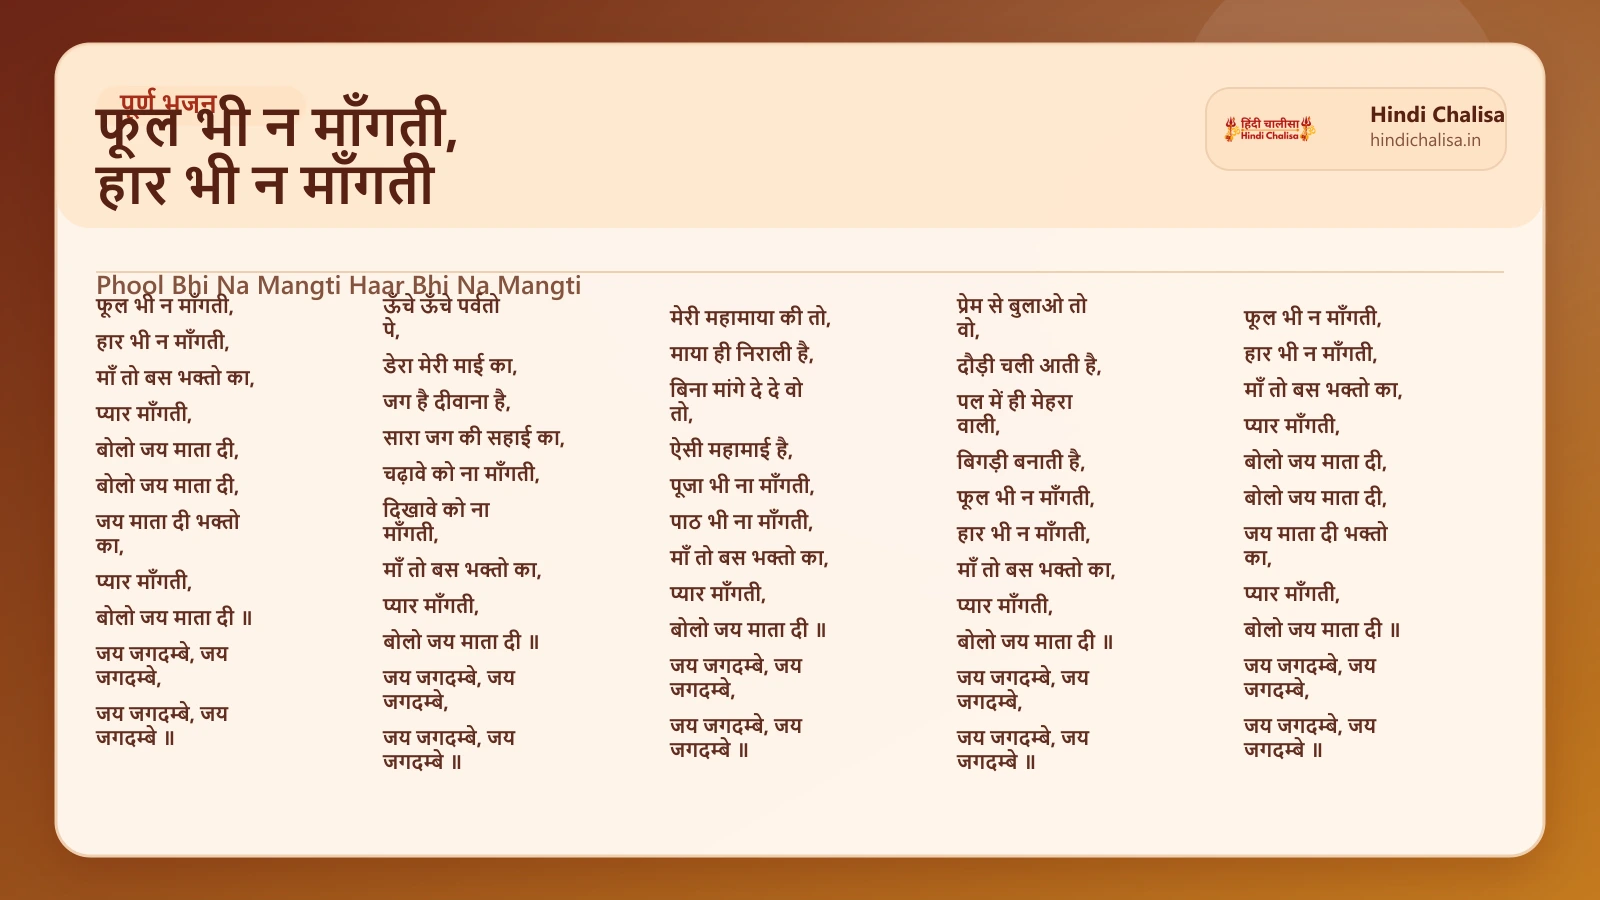 पूर्ण भजन
फूल भी न माँगती,
हार भी न माँगती
हिंदी चालीसा
Hindi Chalisa
Hindi Chalisa
hindichalisa.in
Phool Bhi Na Mangti Haar Bhi Na Mangti
फूल भी न माँगती,
हार भी न माँगती,
माँ तो बस भक्तो का,
प्यार माँगती,
बोलो जय माता दी,
बोलो जय माता दी,
जय माता दी भक्तो
का,
प्यार माँगती,
बोलो जय माता दी ॥
जय जगदम्बे, जय
जगदम्बे,
जय जगदम्बे, जय
जगदम्बे ॥
ऊँचे ऊँचे पर्वतो
पे,
डेरा मेरी माई का,
जग है दीवाना है,
सारा जग की सहाई का,
चढ़ावे को ना माँगती,
दिखावे को ना
माँगती,
माँ तो बस भक्तो का,
प्यार माँगती,
बोलो जय माता दी ॥
जय जगदम्बे, जय
जगदम्बे,
जय जगदम्बे, जय
जगदम्बे ॥
मेरी महामाया की तो,
माया ही निराली है,
बिना मांगे दे दे वो
तो,
ऐसी महामाई है,
पूजा भी ना माँगती,
पाठ भी ना माँगती,
माँ तो बस भक्तो का,
प्यार माँगती,
बोलो जय माता दी ॥
जय जगदम्बे, जय
जगदम्बे,
जय जगदम्बे, जय
जगदम्बे ॥
प्रेम से बुलाओ तो
वो,
दौड़ी चली आती है,
पल में ही मेहरा
वाली,
बिगड़ी बनाती है,
फूल भी न माँगती,
हार भी न माँगती,
माँ तो बस भक्तो का,
प्यार माँगती,
बोलो जय माता दी ॥
जय जगदम्बे, जय
जगदम्बे,
जय जगदम्बे, जय
जगदम्बे ॥
फूल भी न माँगती,
हार भी न माँगती,
माँ तो बस भक्तो का,
प्यार माँगती,
बोलो जय माता दी,
बोलो जय माता दी,
जय माता दी भक्तो
का,
प्यार माँगती,
बोलो जय माता दी ॥
जय जगदम्बे, जय
जगदम्बे,
जय जगदम्बे, जय
जगदम्बे ॥